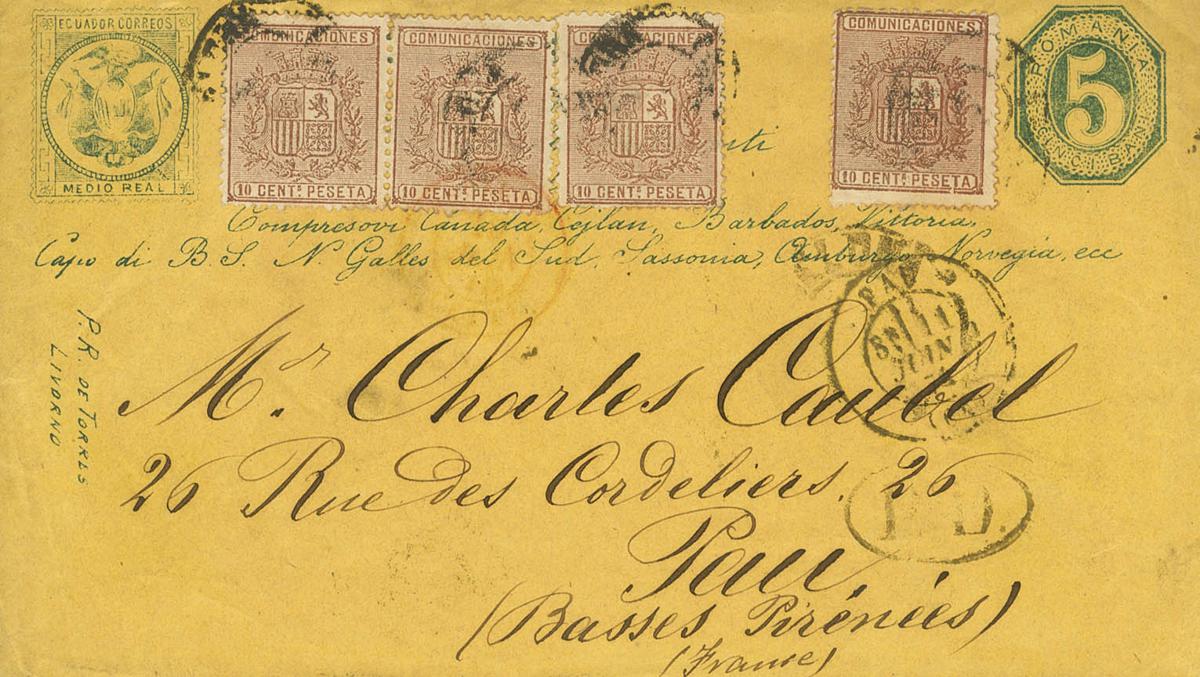 ECUADOR CORREOS
MEDIO REAL
COMUNICACIONES
10 CENT.S PESETA
COMUNICACIONES
10 CENT.S PESETA
COMUNICACIONES
10 CENT.S PESETA
COMUNICACIONES
10 CENT.S PESETA
ROMANIA
5
CINCI BANI
Compresovi Canada, Cejlan, Barbados, Vittoria,
Capo di B. S. N Galles del Sud, Sassonia, Amburgo Norvegia, ecc
P. R. DE TORRES
LIVORNO
PAU
11
JUIN
Mr. Charles Caubel
26 Rue des Cordeliers. 26
P.D.
Pau,
(Basses Pirénées)
(France)